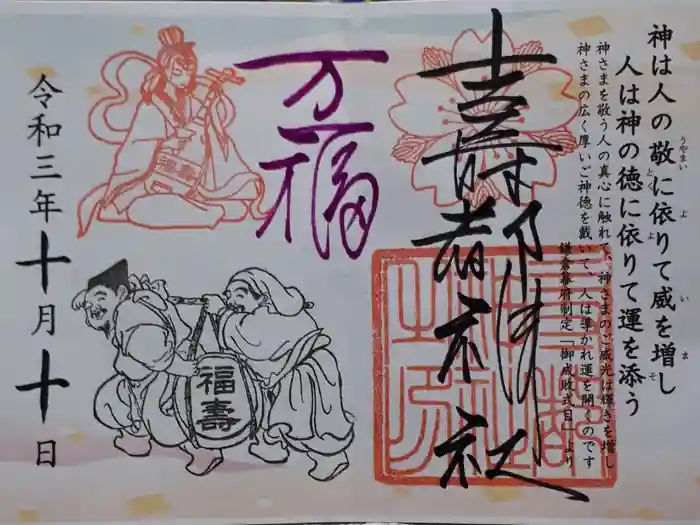 神は人の敬に依りて威を増し
うやまい よ い ま
人は神の徳に依りて運を添う
とく よ そ
神さまを敬う人の真心に触れて、神さまのご威光は輝きを増し
神さまの広く厚いご神徳を戴いて、人は導かれ運を開くのです
鎌倉幕府制定「御成敗式目」より
壽都神社
万福
福壽
令和三年十月十日